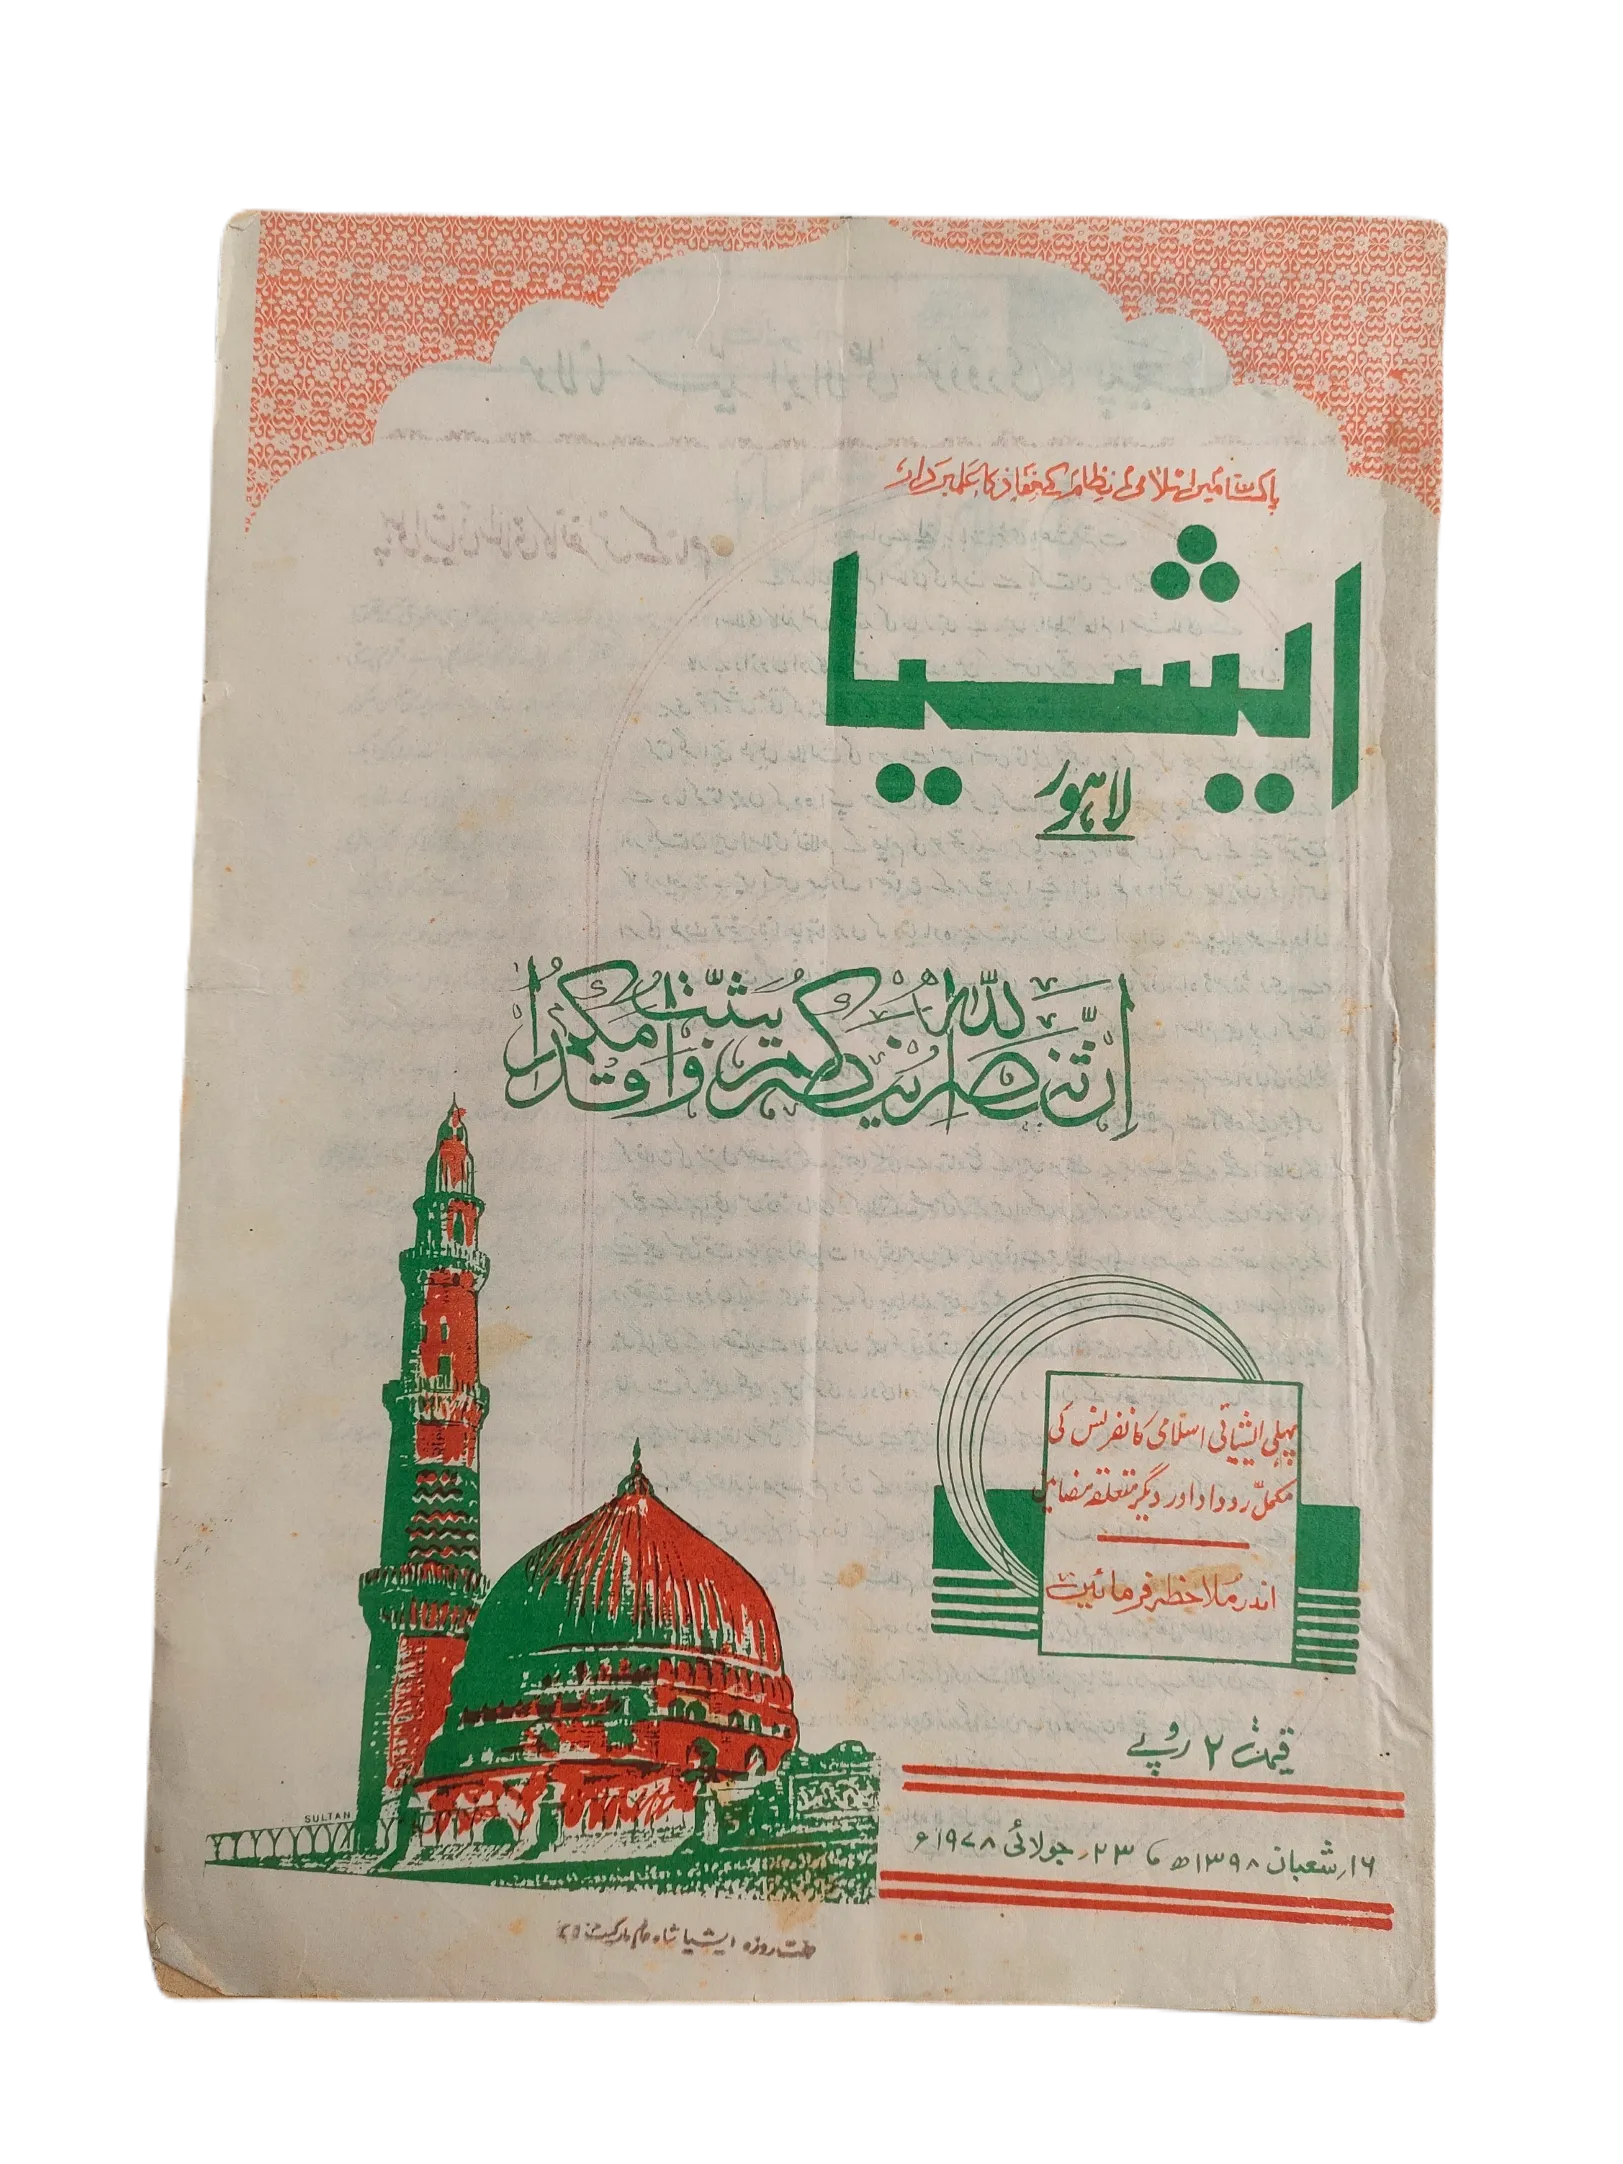 پاکستان میں اسلامی نظام کے نفاذ کا علمبردار
ایشیا
لاہور
اِنْ تَنْصُرُوا اللّٰهَ يَنْصُرْكُمْ وَيُثَبِّتْ اَقْدَامَكُمْ
پہلی ایشیائی اسلامی کانفرنس کی
مکمل روداد اور دیگر متعلقہ مضامین
اندر ملاحظہ فرمائیں
قیمت ۲ روپے
۱۶؍ شعبان ۱۳۹۸ھ ، ۲۳؍ جولائی ۱۹۷۸ء
SULTAN
ہفت روزہ ایشیا شاہ عالم مارکیٹ